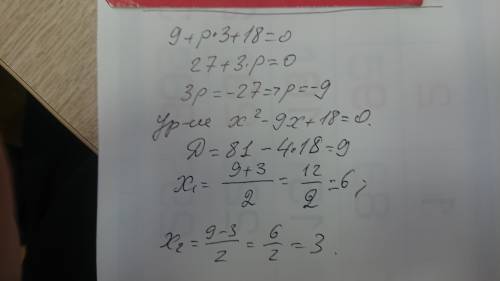 9+p·3+18=0
27+3·p=0
3p=-27=>p=-9
Ур-ие x²-9x+18=0.
D=81-4·18=9
x₁= (9+3)/2 = 12/2 = 6;
x₂= (9-3)/2 = 6/2 = 3.